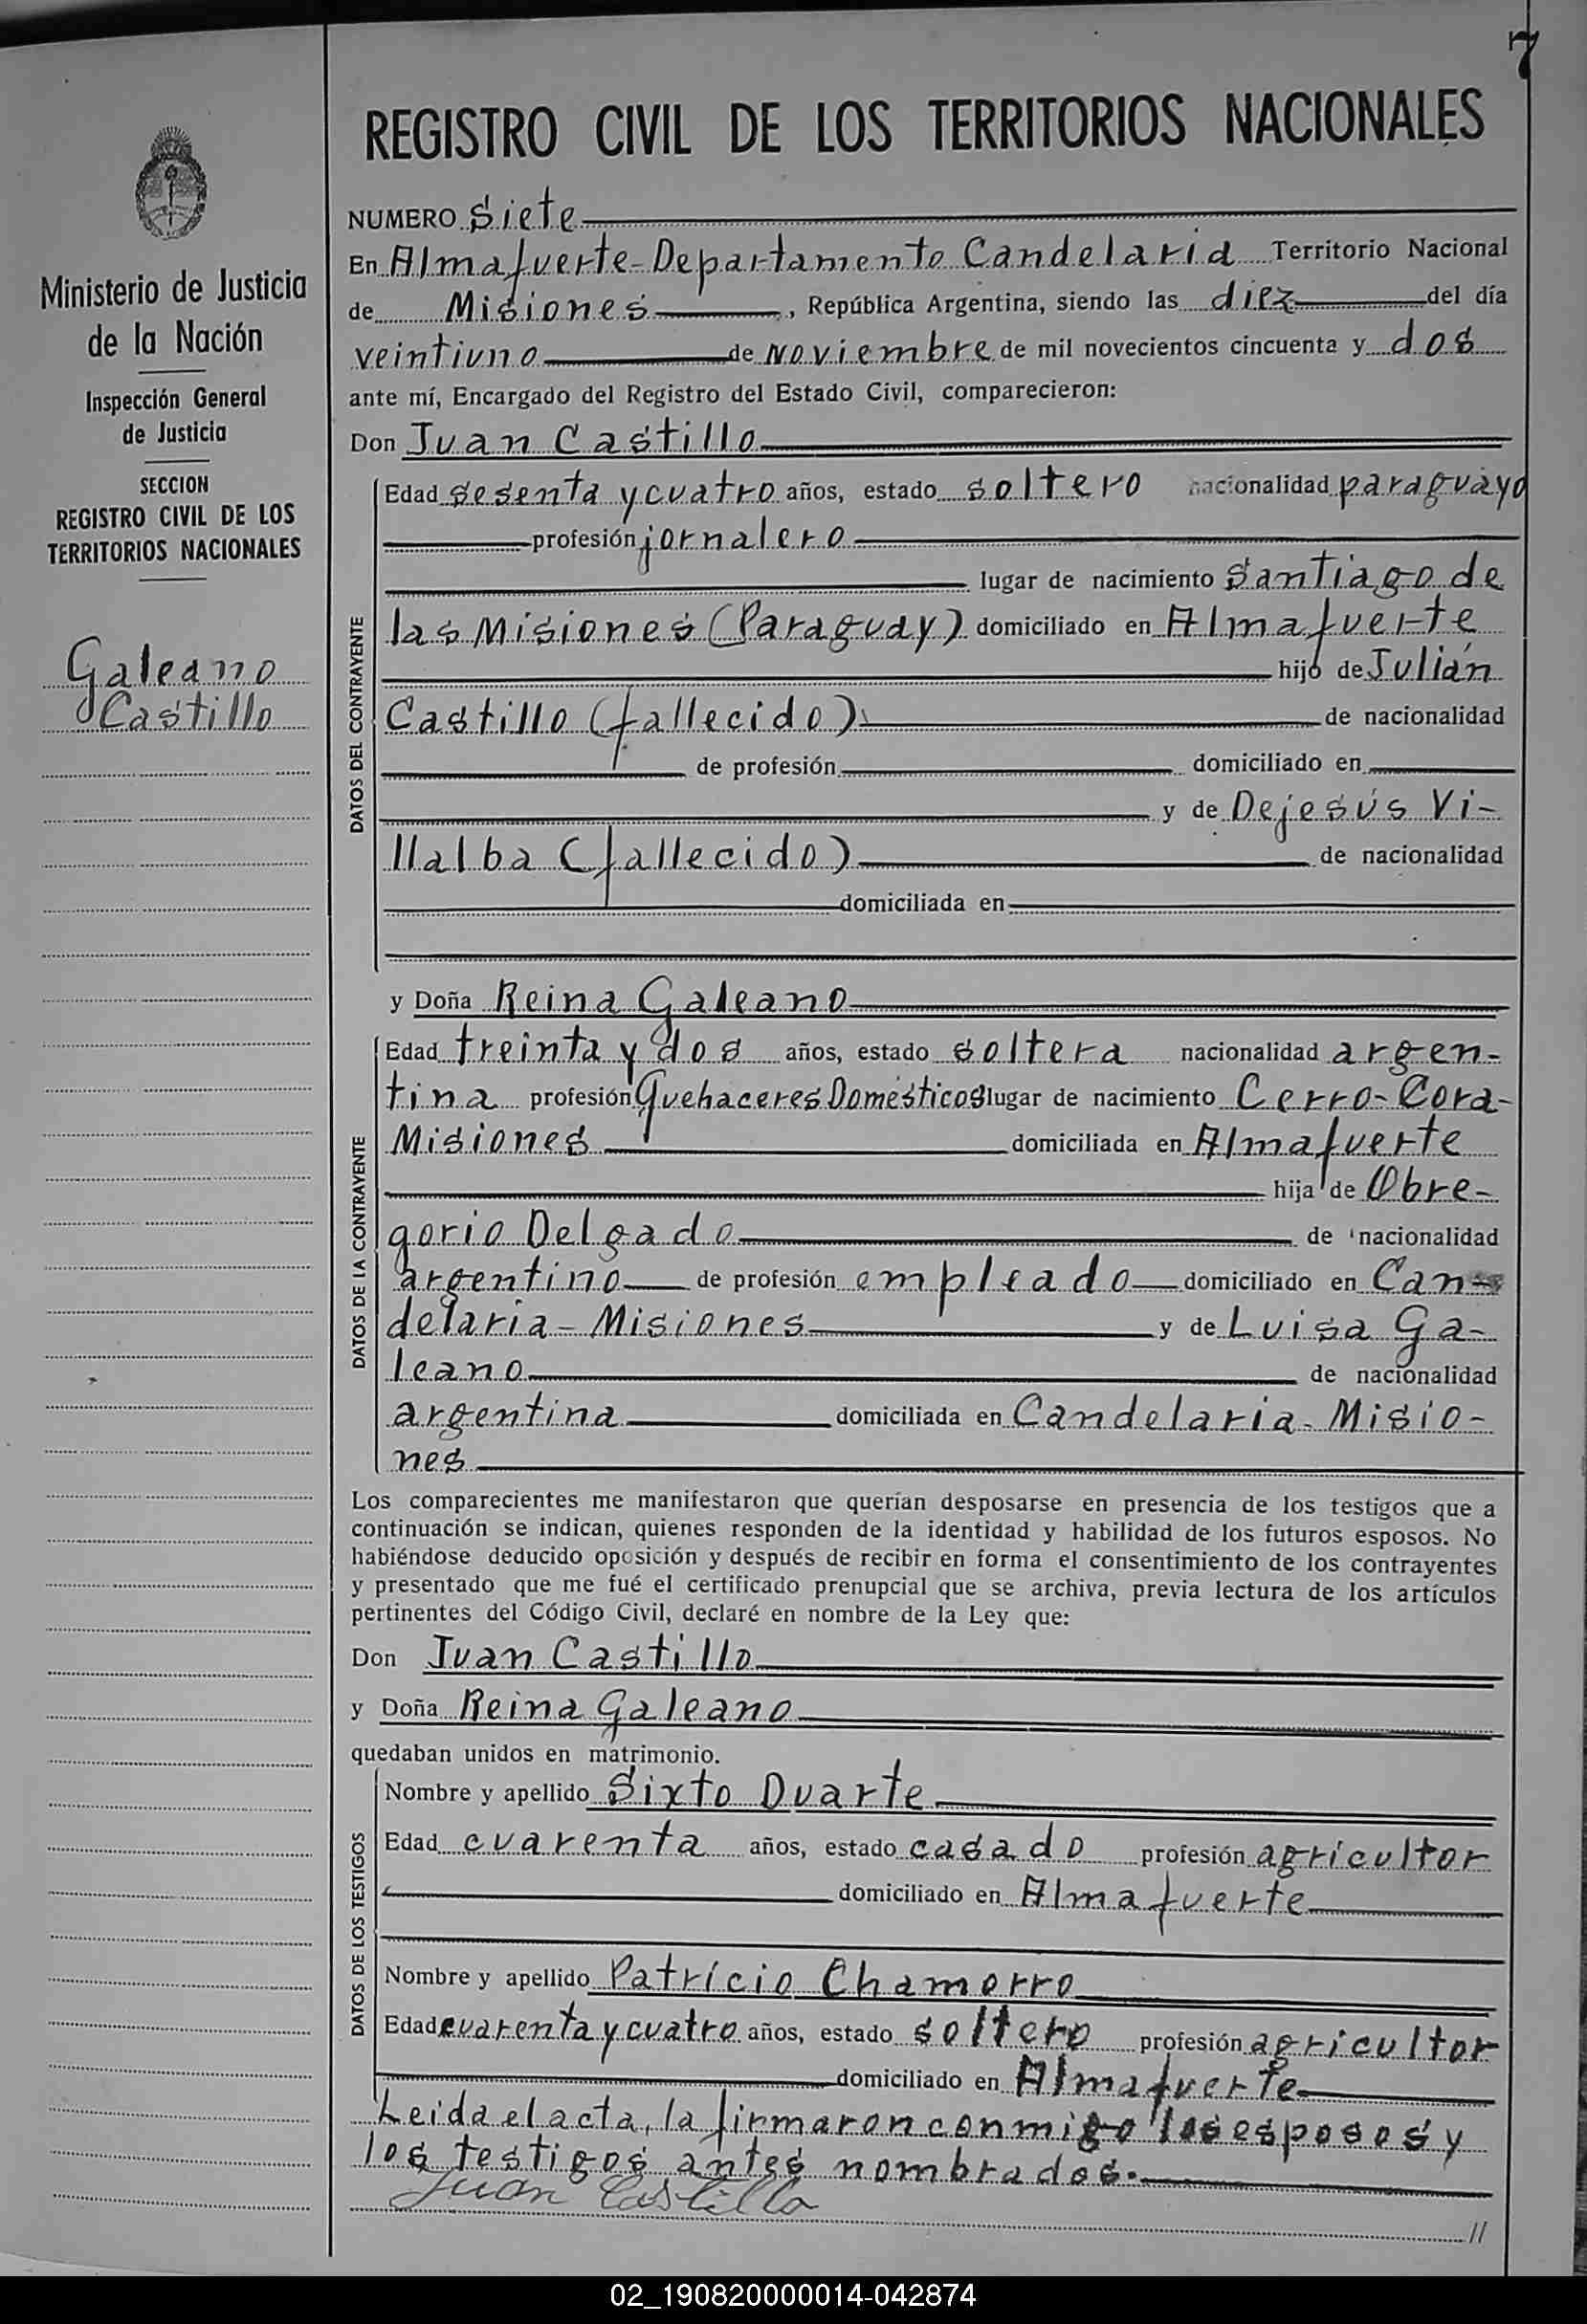 7
REGISTRO CIVIL DE LOS TERRITORIOS NACIONALES
Ministerio de Justicia
de la Nación
Inspección General
de Justicia
SECCION
REGISTRO CIVIL DE LOS
TERRITORIOS NACIONALES
Galeano
Castillo
NUMERO Siete
En Almafuerte-Departamento Candelaria Territorio Nacional
de Misiones, República Argentina, siendo las diez del día
veintiuno de noviembre de mil novecientos cincuenta y dos
ante mí, Encargado del Registro del Estado Civil, comparecieron:
Don Juan Castillo
DATOS DEL CONTRAYENTE
Edad sesenta y cuatro años, estado soltero nacionalidad paraguayo
profesión jornalero
lugar de nacimiento Santiago de
las Misiones (Paraguay) domiciliado en Almafuerte
hijo de Julián
Castillo (fallecido) de nacionalidad
de profesión domiciliado en
y de Dejesús Vi-
llalba (fallecido) de nacionalidad
domiciliada en
y Doña Reina Galeano
DATOS DE LA CONTRAYENTE
Edad treinta y dos años, estado soltera nacionalidad argen-
tina profesión Quehaceres Domésticos lugar de nacimiento Cerro-Cora-
Misiones domiciliada en Almafuerte
hija de Obre-
gorio Delgado de nacionalidad
argentino de profesión empleado domiciliado en Can-
delaria-Misiones y de Luisa Ga-
leano de nacionalidad
argentina domiciliada en Candelaria-Misio-
nes
Los comparecientes me manifestaron que querían desposarse en presencia de los testigos que a
continuación se indican, quienes responden de la identidad y habilidad de los futuros esposos. No
habiéndose deducido oposición y después de recibir en forma el consentimiento de los contrayentes
y presentado que me fué el certificado prenupcial que se archiva, previa lectura de los artículos
pertinentes del Código Civil, declaré en nombre de la Ley que:
Don Juan Castillo
y Doña Reina Galeano
quedaban unidos en matrimonio.
DATOS DE LOS TESTIGOS
Nombre y apellido Sixto Duarte
Edad cuarenta años, estado casado profesión agricultor
domiciliado en Almafuerte
Nombre y apellido Patricio Chamorro
Edad cuarenta y cuatro años, estado soltero profesión agricultor
domiciliado en Almafuerte
Leida el acta, la firmaron conmigo los esposos y
los testigos antes nombrados.
Juan Castillo
//
02_190820000014-042874